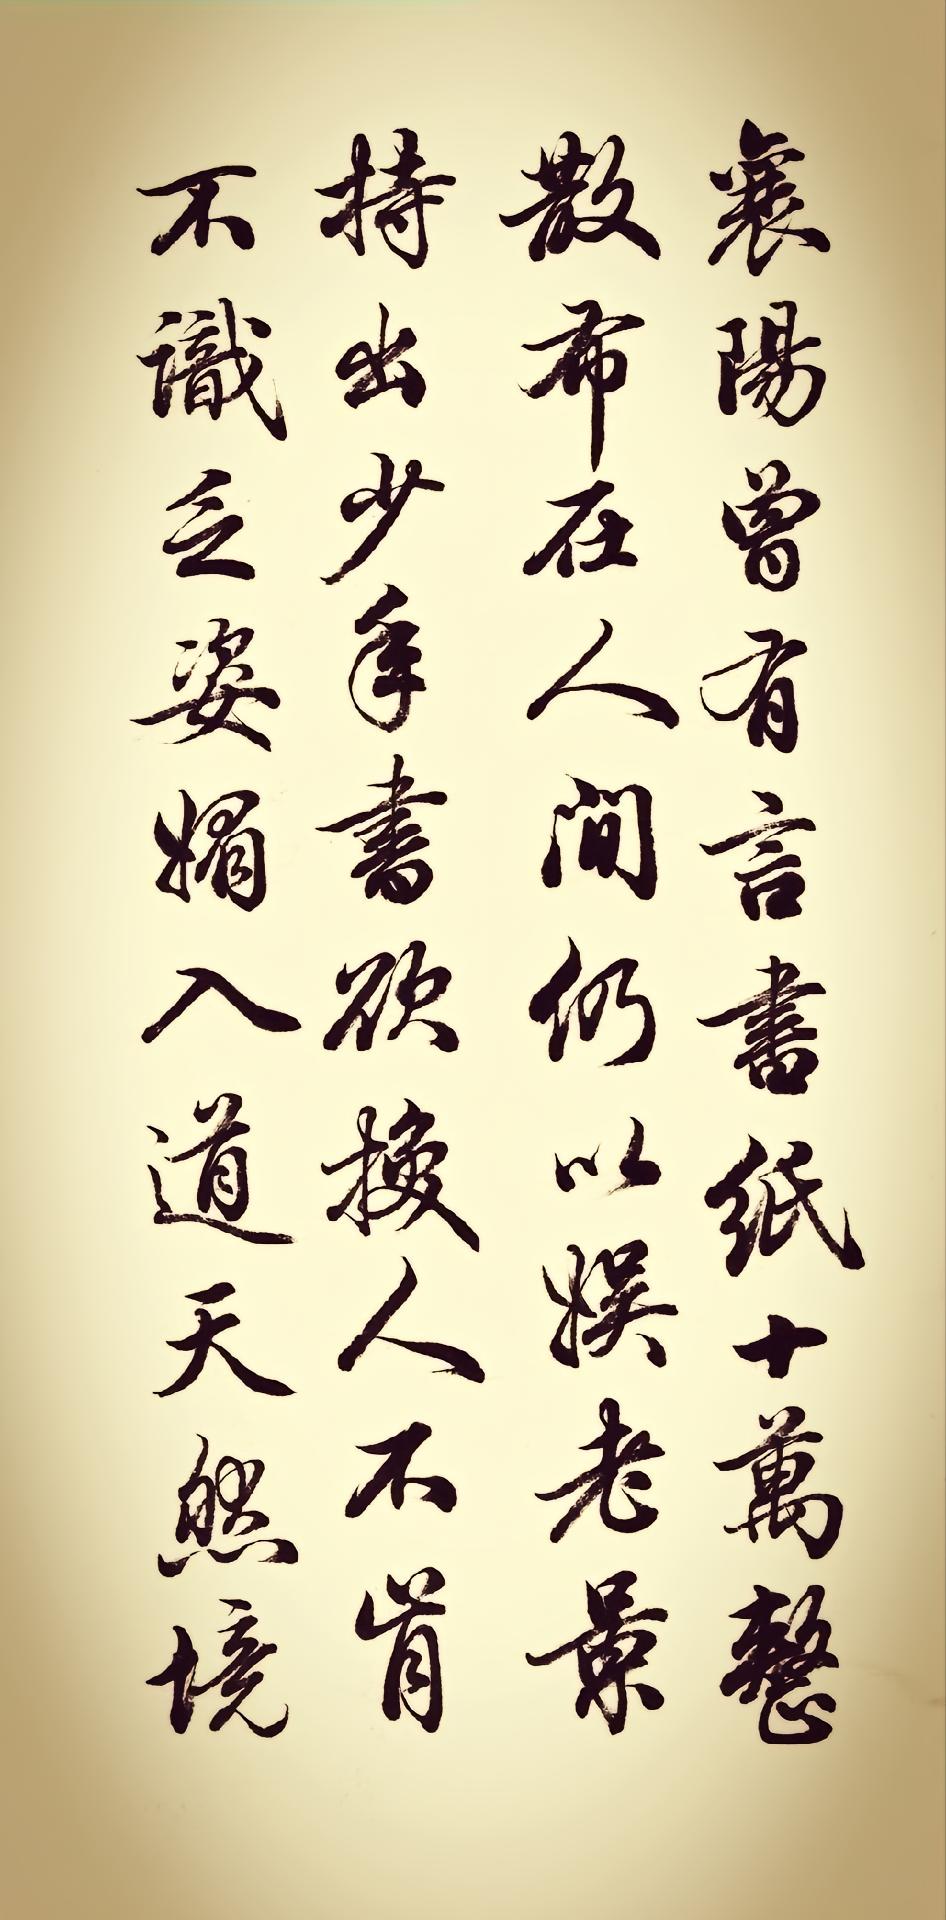 襄陽曾有言書紙十萬整
散布在人間仍以娱老景
持出少年書欲換人不肯
不識乏姿媚入道天然境